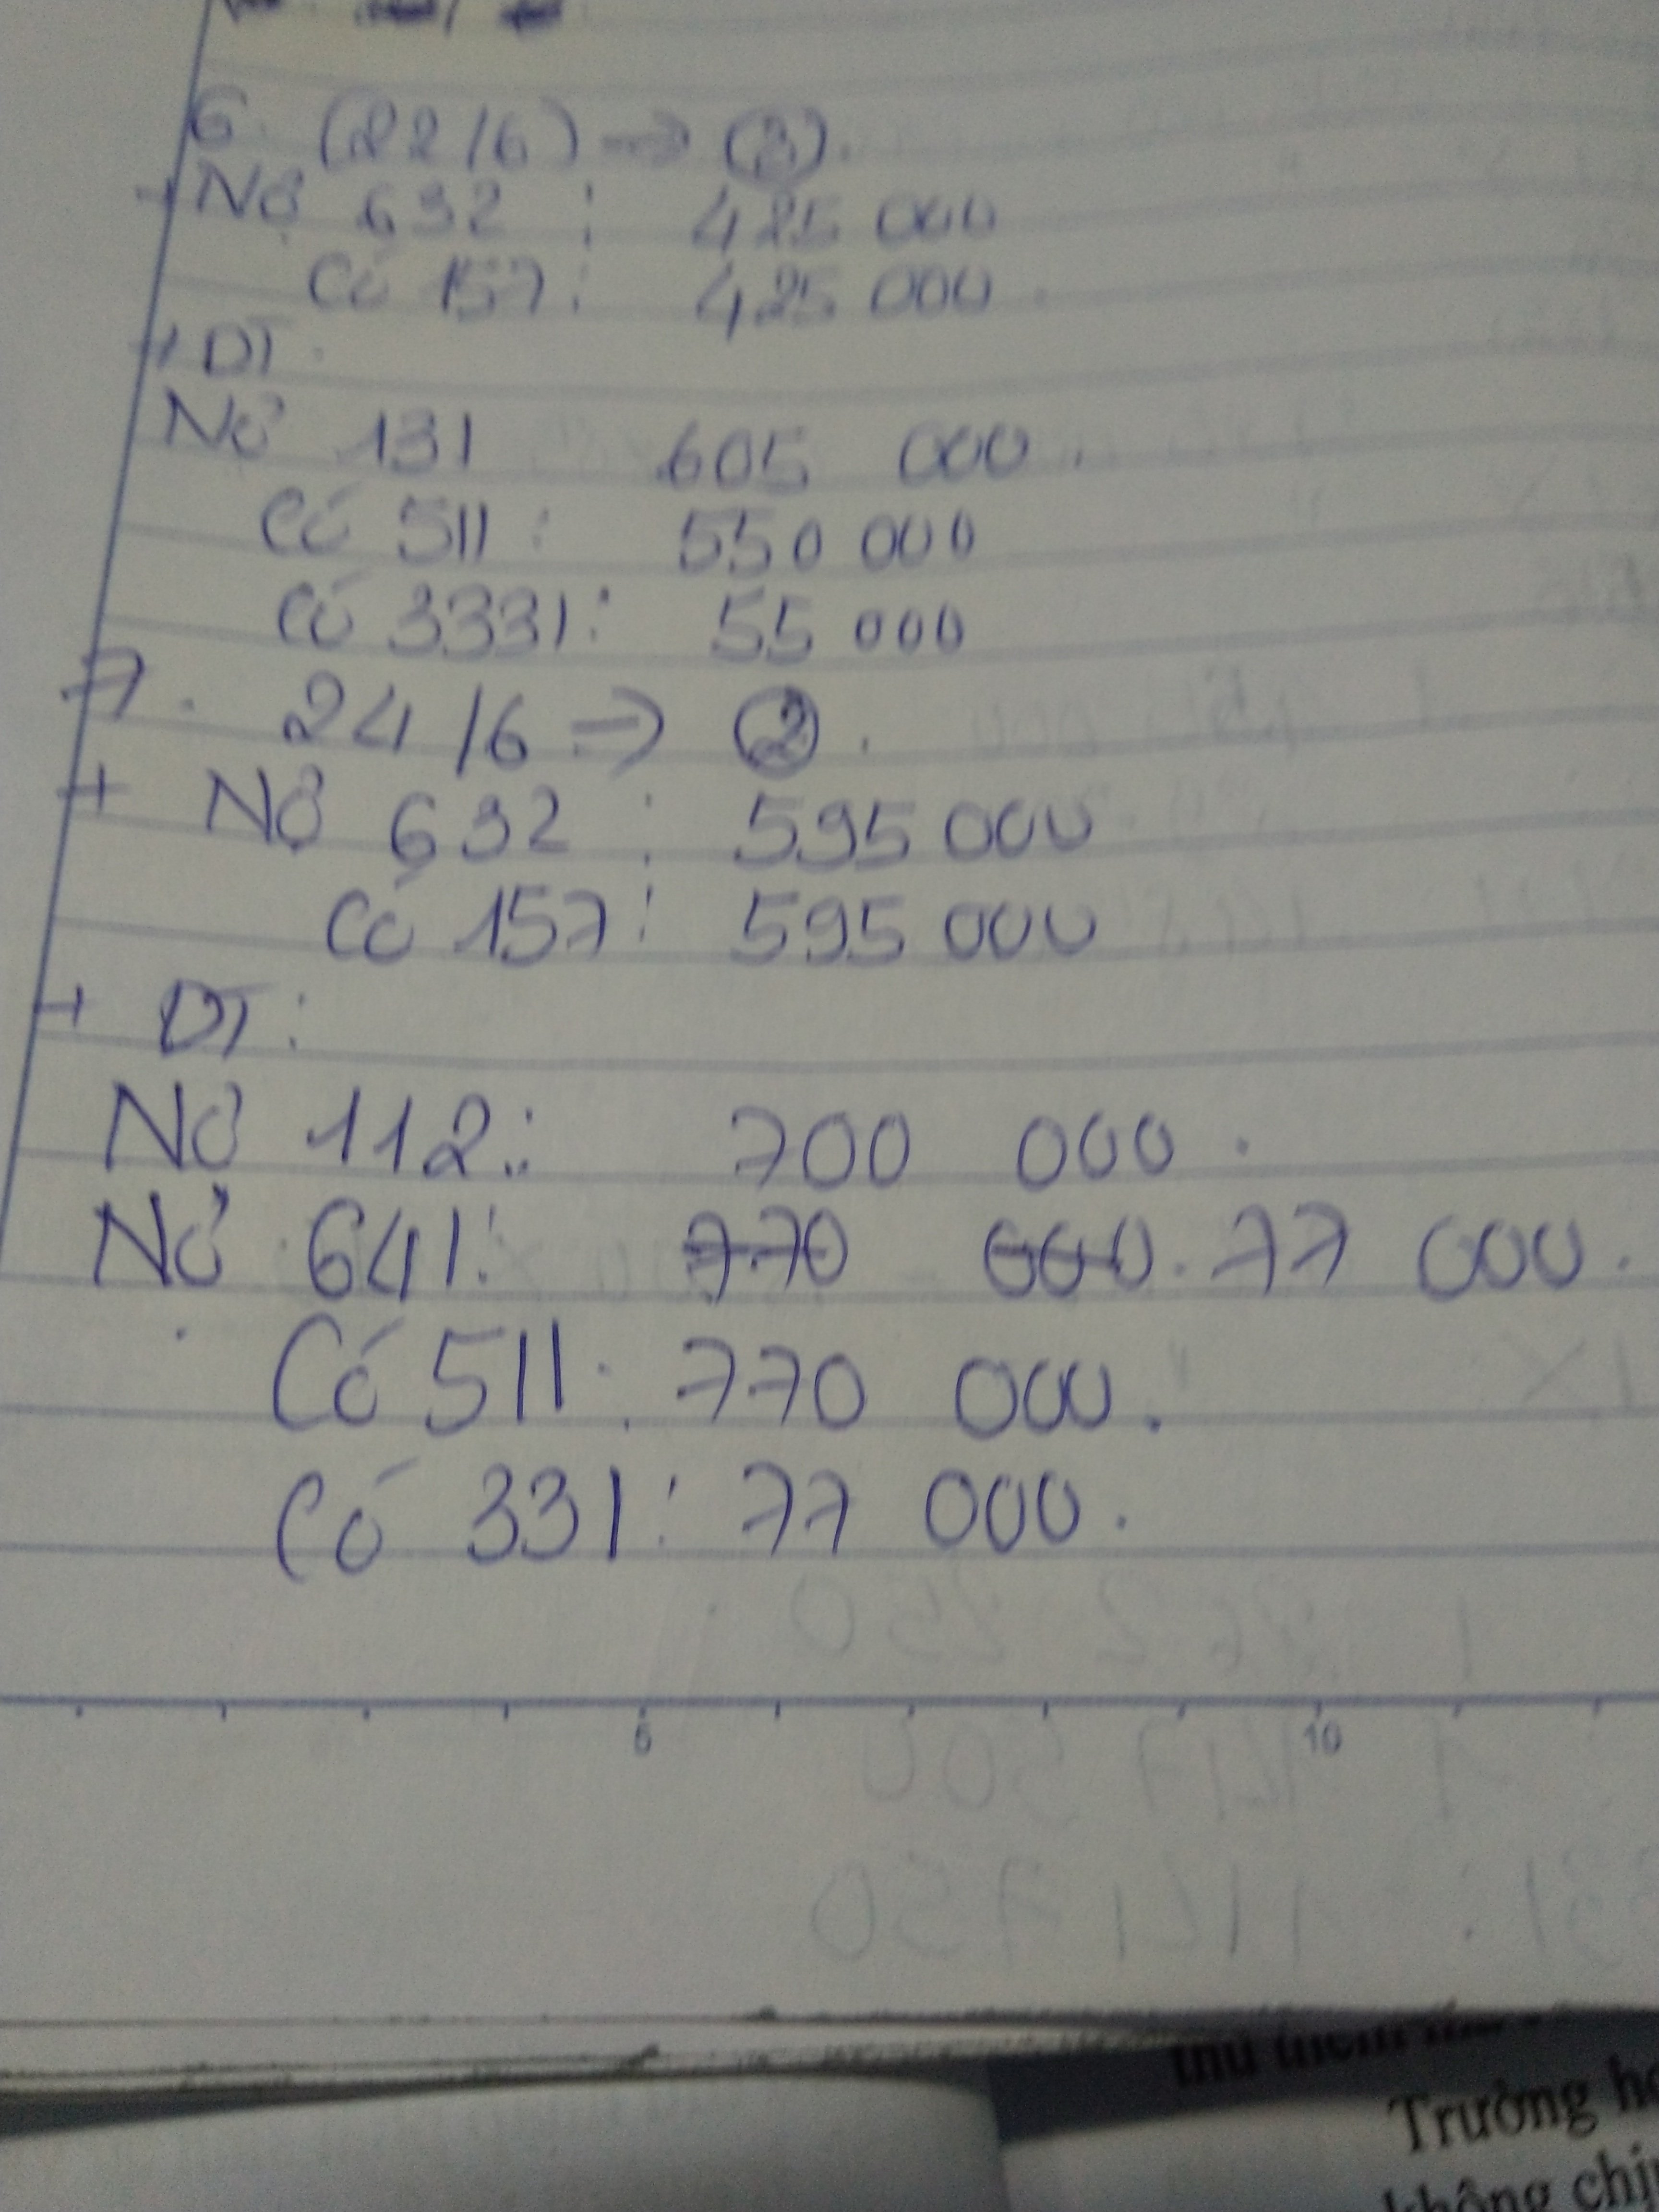 6. (22/6) => (2).
+ Nợ 632 : 425 000
Có 157 : 425 000
+ DT.
Nợ 131 605 000.
Có 511 : 550 000
Có 3331 : 55 000
7. 24/6 => (2).
+ Nợ 632 : 595 000
Có 157 : 595 000
+ DT :
Nợ 112 : 700 000.
Nợ 641 : 770 000. 77 000.
Có 511 : 770 000.
Có 331 : 77 000.
5 10
Trường
không